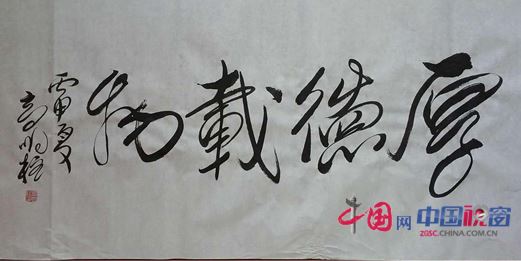 厚德載物
中国网 中国视窗
ZGSC.CHINA.COM.CN